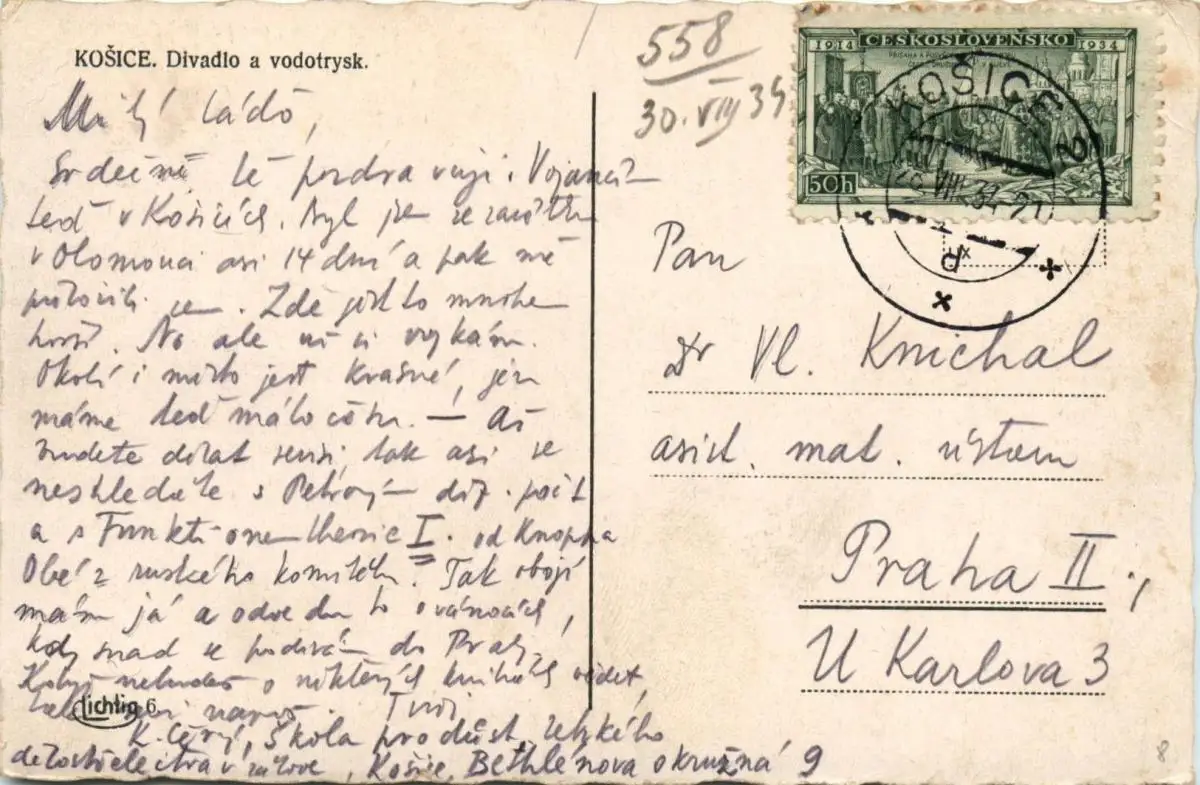 KOŠICE. Divadlo a vodotrysk.
558
30. VIII 34
1914 ČESKOSLOVENSKO 1934
50h
KOŠICE 2
VIII. 34-21
Milý Láďo,
Srdečně tě pozdravuji. Vojančím
teď v Košicích. Byl jsem ze začátku
v Olomouci asi 14 dní a pak mě
přeložili sem. Zde jest to mnohem
horší. No ale už si zvykám.
Okolí i město jest krásné, jen
máme teď málo času. — Až
budete dělat revisi, tak asi se
neshledáte s Petrovým dif. počt
a s Funktionentheorie I. od Knoppa
Obé z ruského komitétu. Tak obojí
mám já a odvedu to o vánocích,
kdy snad se podívám do Prahy.
Kdybys nebudeš o některých knihách vědět,
Tvůj
K. Černý, Škola pro důst. zálohy
dělostřelectva v záloze, Košice, Bethlénova okružná 9
Lichtig 6.
Pan
Dr Vl. Knichal
asist. mat. ústavu
Praha II.,
U Karlova 3
8